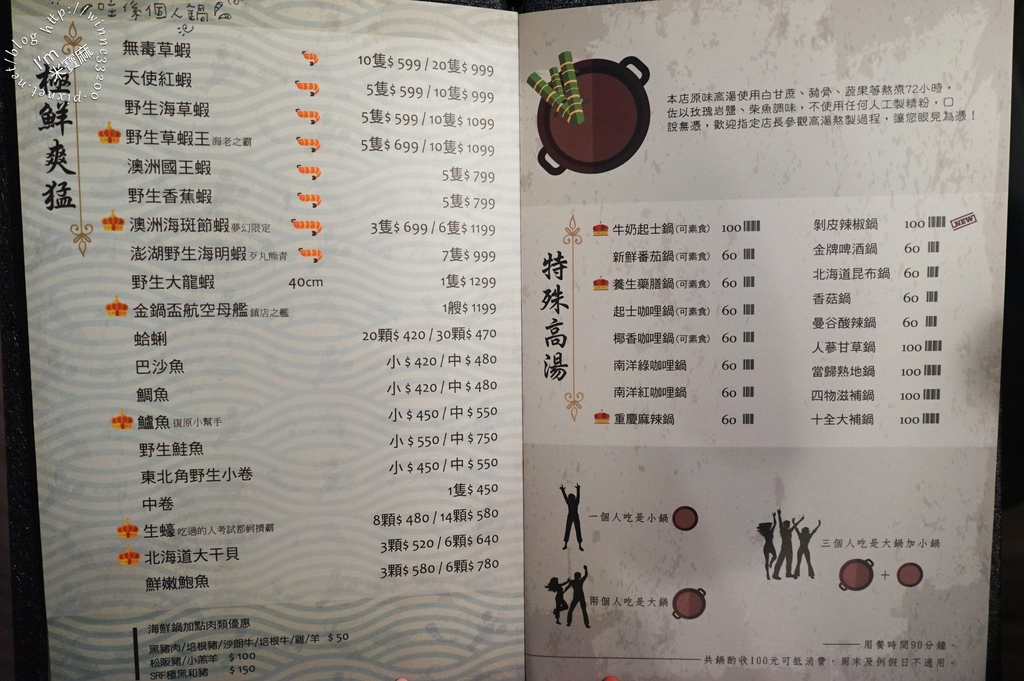 唯係個人鍋
極鮮爽猛
無毒草蝦 10隻$ 599 / 20隻$ 999
天使紅蝦 5隻$ 599 / 10隻$ 999
野生海草蝦 5隻$ 599 / 10隻$ 1099
野生草蝦王 海老之霸 5隻$ 699 / 10隻$ 1099
澳洲國王蝦 5隻$ 799
野生香蕉蝦 5隻$ 799
澳洲海斑節蝦 夢幻限定 3隻$ 699 / 6隻$ 1199
澎湖野生海明蝦 歹丸熊青 7隻$ 999
野生大龍蝦 40cm 1隻$ 1299
金鍋盃航空母艦 鎮店之艦 1艘$ 1199
蛤蜊 20顆$ 420 / 30顆$ 470
巴沙魚 小 $ 420 / 中 $ 480
鯛魚 小 $ 420 / 中 $ 480
鱸魚 復原小幫手 小 $ 450 / 中 $ 550
野生鮭魚 小 $ 550 / 中 $ 750
東北角野生小卷 小 $ 450 / 中 $ 550
中卷 1隻$ 450
生蠔 吃過的人考試都蚵擠霸 8顆$ 480 / 14顆$ 580
北海道大干貝 3顆$ 520 / 6顆$ 640
鮮嫩鮑魚 3顆$ 580 / 6顆$ 780
海鮮鍋加點肉類優惠
黑豬肉/培根豬/沙朗牛/培根牛/雞/羊 $ 50
松阪豬/小羔羊 $ 100
SRF極黑和豬 $ 150
本店原味高湯使用白甘蔗、豬骨、蔬果等熬煮72小時，
佐以玫瑰岩鹽、柴魚調味，不使用任何人工製精粉，口
說無憑，歡迎指定店長參觀高湯熬製過程，讓您眼見為憑！
特殊高湯
牛奶起士鍋(可素食) 100
新鮮番茄鍋(可素食) 60
養生藥膳鍋(可素食) 60
起士咖哩鍋(可素食) 60
椰香咖哩鍋(可素食) 60
南洋綠咖哩鍋 60
南洋紅咖哩鍋 60
重慶麻辣鍋 60
剝皮辣椒鍋 100 NEW
金牌啤酒鍋 60
北海道昆布鍋 60
香菇鍋 60
曼谷酸辣鍋 60
人蔘甘草鍋 100
當歸熟地鍋 100
四物滋補鍋 100
十全大補鍋 100
一個人吃是小鍋
兩個人吃是大鍋
三個人吃是大鍋加小鍋
+
用餐時間90分鐘。
共鍋酌收100元可抵消費，周末及例假日不適用。
I'm 米寶麻
http://winnie33200
.pixnet.net/blog